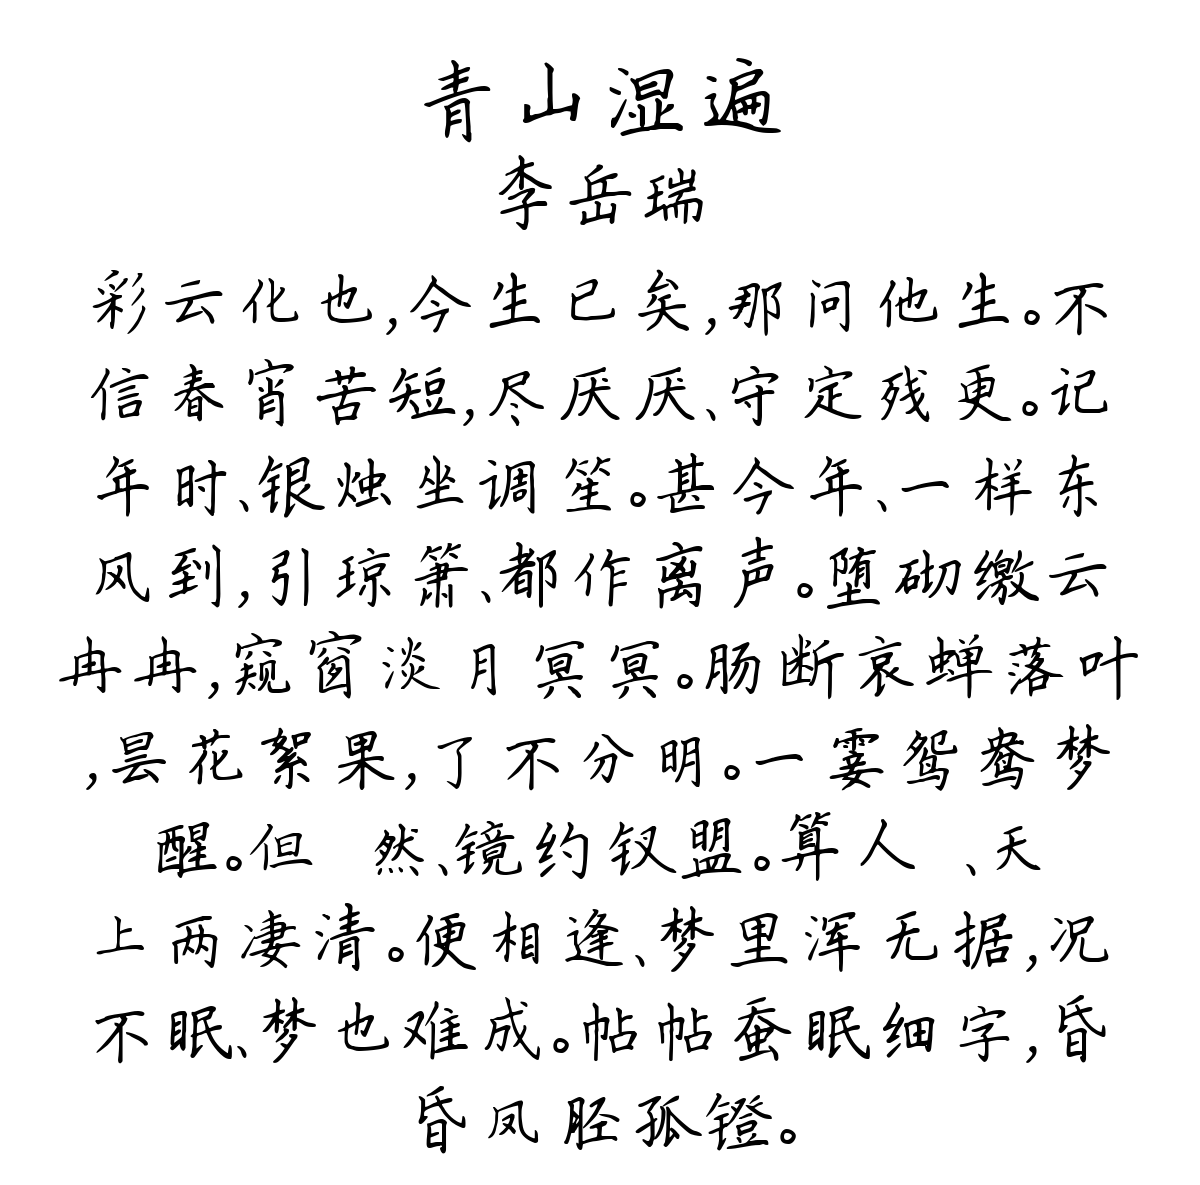 青山湿遍
李岳瑞
彩云化也,今生已矣,那问他生。不
信春宵苦短,尽厌厌、守定残更。记
年时、银烛坐调笙。甚今年、一样东
风到,引琼箫、都作离声。堕砌缴云
冉冉,窥窗淡月冥冥。肠断哀蝉落叶
,昙花絮果,了不分明。一霎鸳鸯梦
醒。但 然、镜约钗盟。算人 、天
上两凄清。便相逢、梦里浑无据,况
不眠、梦也难成。帖帖蚕眠细字,昏
昏凤胫孤镫。